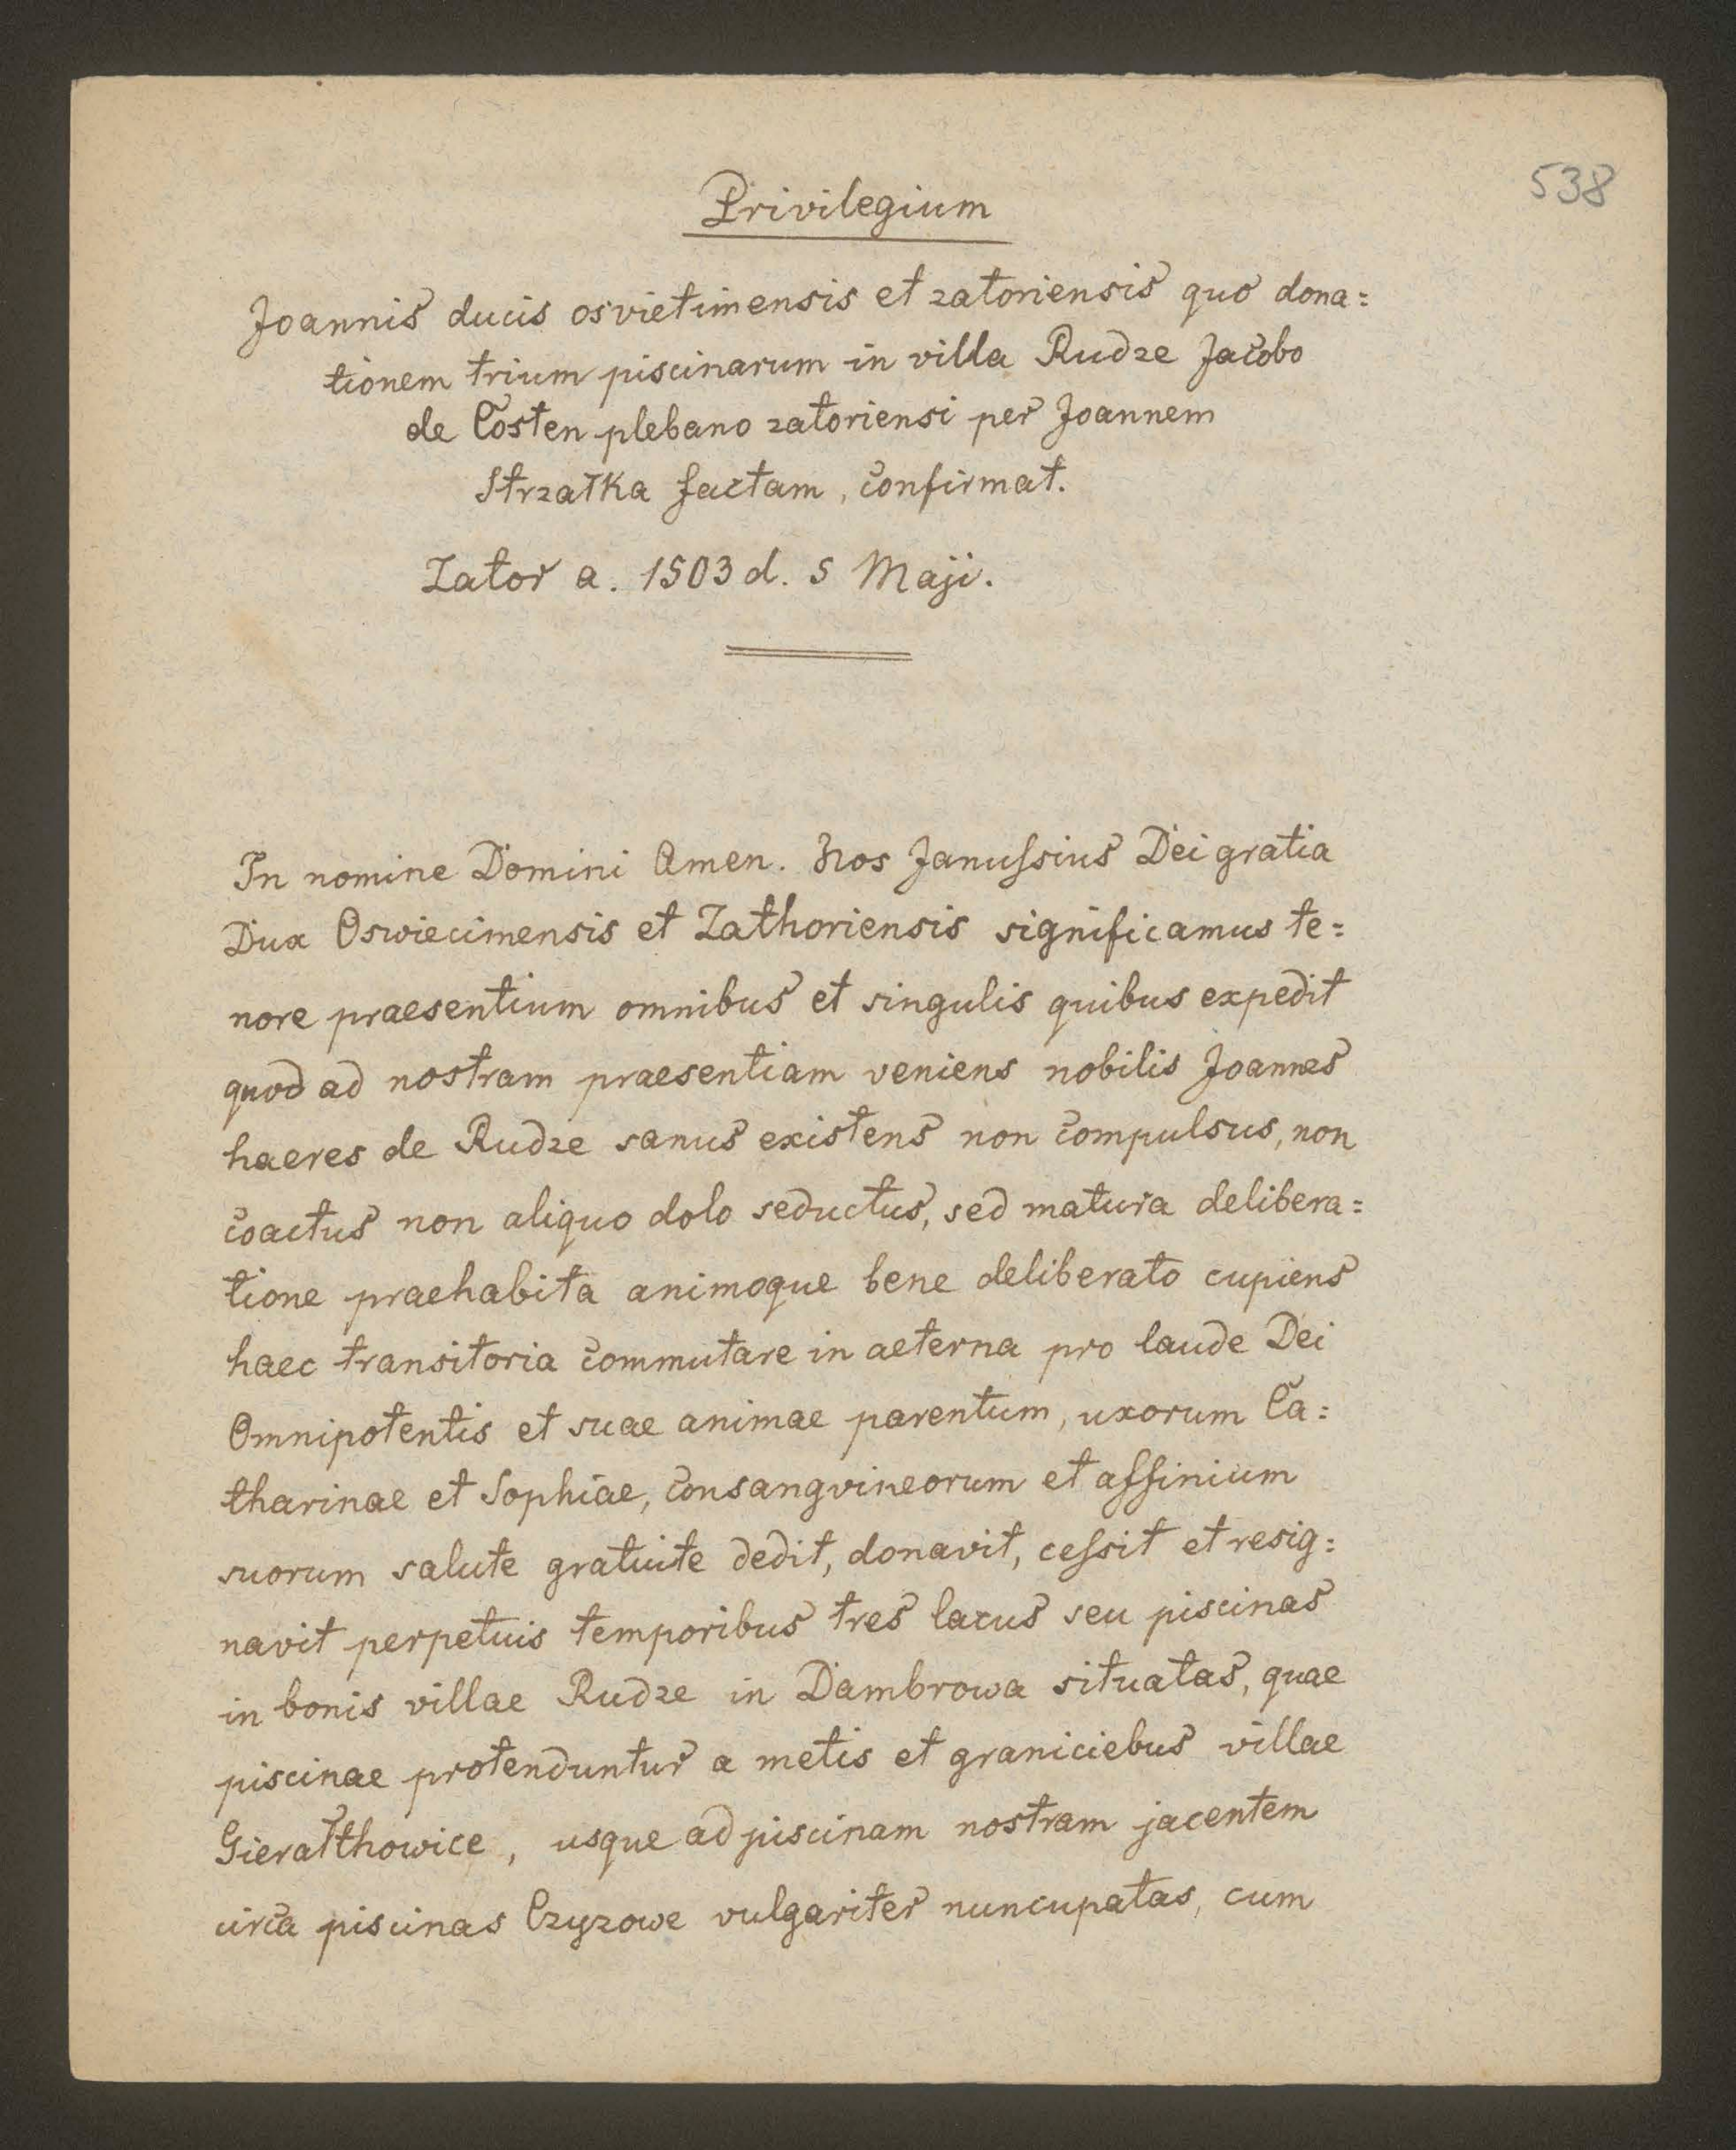 538
Privilegium
Joannis ducis osvietimensis et zatoriensis quo dona=
tionem trium piscinarum in villa Rudze Jacobo
de Costen plebano zatoriensi per Joannem
Strzałka factam, confirmat.
Zator a. 1503 d. 5 Maji.
In nomine Domini Amen. Nos Januſsius Dei gratia
Dux Oswiecimensis et Zathoriensis significamus te=
nore praesentium omnibus et singulis quibus expedit
quod ad nostram praesentiam veniens nobilis Joannes
haeres de Rudze sanus existens non compulsus, non
coactus non aliquo dolo seductus, sed matura delibera=
tione praehabita animoque bene deliberato cupiens
haec transitoria commutare in aeterna pro laude Dei
Omnipotentis et suae animae parentum, uxorum Ca=
tharinae et Sophiae, consangvineorum et affinium
suorum salute gratuite dedit, donavit, ceſsit et resig=
navit perpetuis temporibus tres lacus seu piscinas
in bonis villae Rudze in Dambrowa situatas, quae
piscinae protenduntur a metis et graniciebus villae
Gierałthowice, usque ad piscinam nostram jacentem
circa piscinas Czyzowe vulgariter nuncupatas, cum